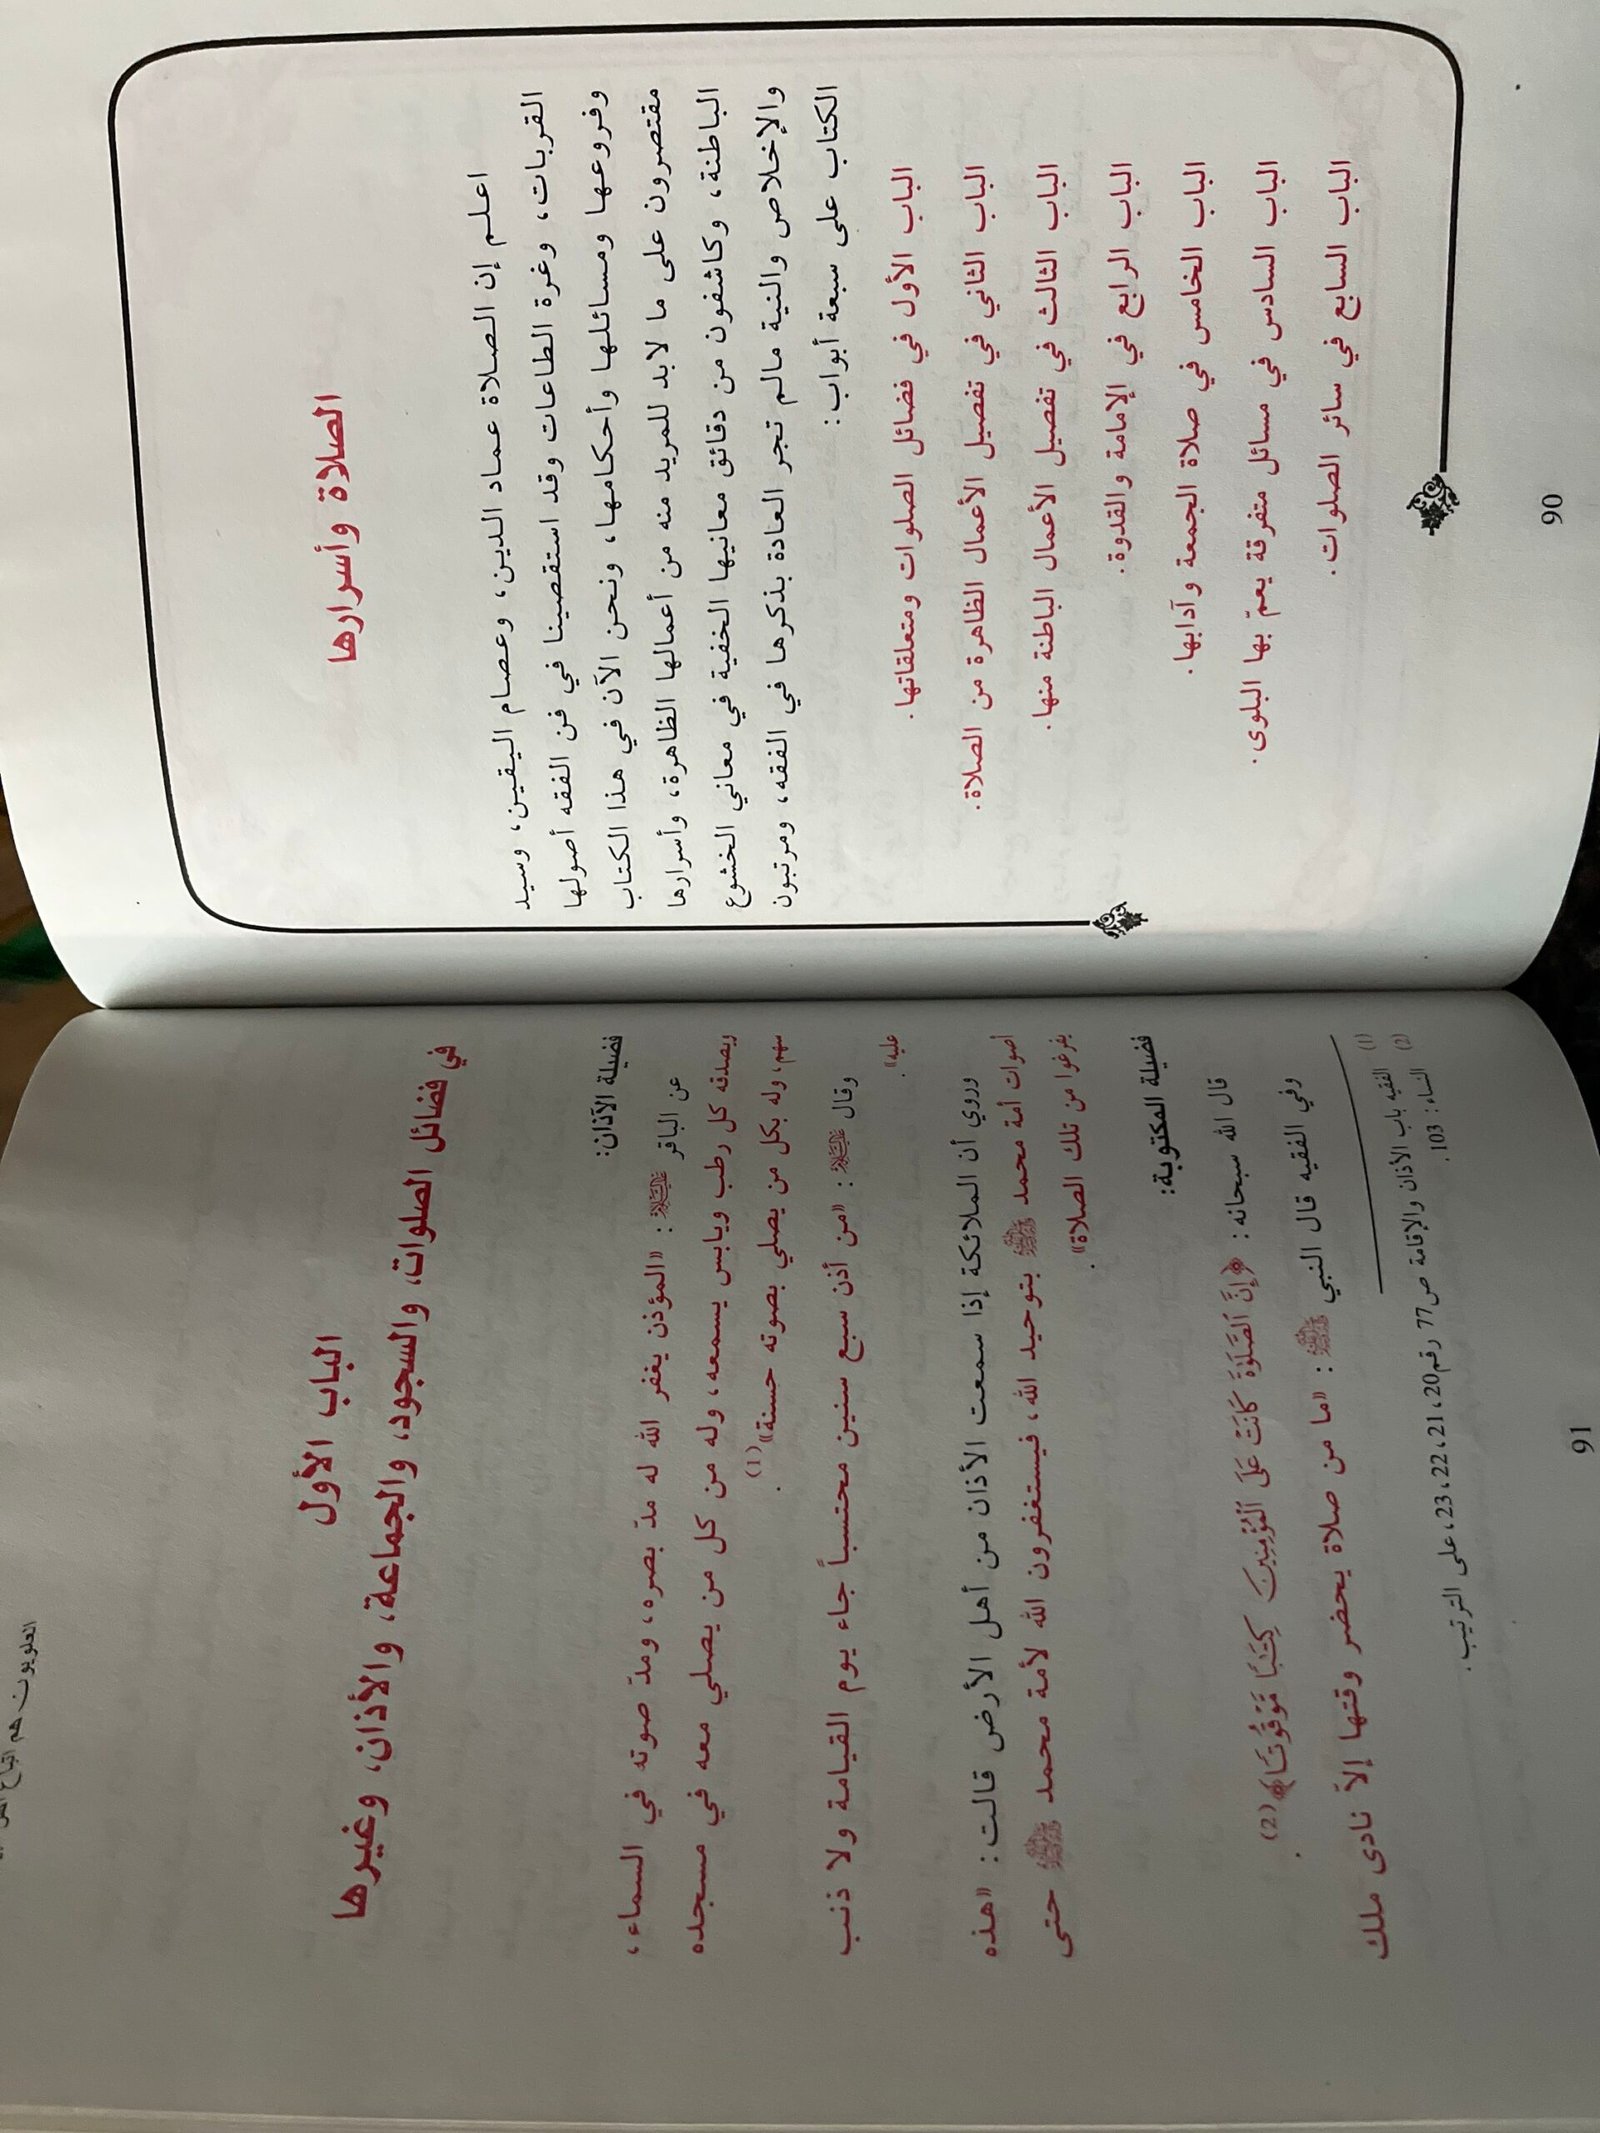 الصلاة وأسرارها
اعلم إن الصلاة عماد الدين، وعصام اليقين، وسيد
القربات، وغرة الطاعات وقد استقصينا في فن الفقه أصولها
وفروعها ومسائلها وأحكامها، ونحن الآن في هذا الكتاب
مقتصرون على ما لابد للمريد منه من أعمالها الظاهرة، وأسرارها
الباطنة، وكاشفون من دقائق معانيها الخفية في معاني الخشوع
والإخلاص والنية مالم تجر العادة بذكرها في الفقه، ومرتبون
الكتاب على سبعة أبواب:
الباب الأول في فضائل الصلوات ومتعلقاتها.
الباب الثاني في تفصيل الأعمال الظاهرة من الصلاة.
الباب الثالث في تفصيل الأعمال الباطنة منها.
الباب الرابع في الإمامة والقدوة.
الباب الخامس في صلاة الجمعة وآدابها.
الباب السادس في مسائل متفرقة يعمّ بها البلوى.
الباب السابع في سائر الصلوات.
90
العلويون هم اتباع
الباب الأول
في فضائل الصلوات، والسجود، والجماعة، والأذان، وغيرها
فضيلة الآذان:
عن الباقر عليه السلام: «المؤذن يغفر الله له مدّ بصره، ومدّ صوته في السماء،
ويصدقه كل رطب ويابس يسمعه، وله من كل من يصلي معه في مسجده
سهم، وله بكل من يصلي بصوته حسنة»(1).
وقال عليه السلام: «من أذن سبع سنين محتسباً جاء يوم القيامة ولا ذنب
عليه».
وروي أن الملائكة إذا سمعت الأذان من أهل الأرض قالت: «هذه
أصوات أمة محمد ﷺ بتوحيد الله، فيستغفرون الله لأمة محمد ﷺ حتى
يفرغوا من تلك الصلاة».
فضيلة المكتوبة:
قال الله سبحانه: ﴿إِنَّ ٱلصَّلَوٰةَ كَانَتْ عَلَى ٱلْمُؤْمِنِينَ كِتَٰبًا مَّوْقُوتًا﴾(2).
وفي الفقيه قال النبي ﷺ: «ما من صلاة يحضر وقتها إلاّ نادى ملك
(1) الفقيه باب الأذان والإقامة ص77 رقم20، 21، 22، 23، على الترتيب.
(2) النساء: 103.
91